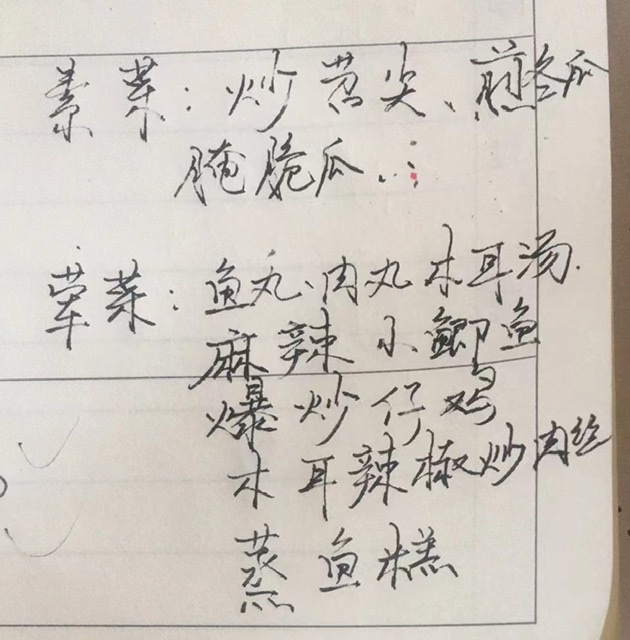 素菜：炒苕尖、煎冬瓜
腌脆瓜
荤菜：鱼丸、肉丸木耳汤.
麻辣小鲫鱼
爆炒仔鸡
木耳辣椒炒肉丝
蒸鱼糕